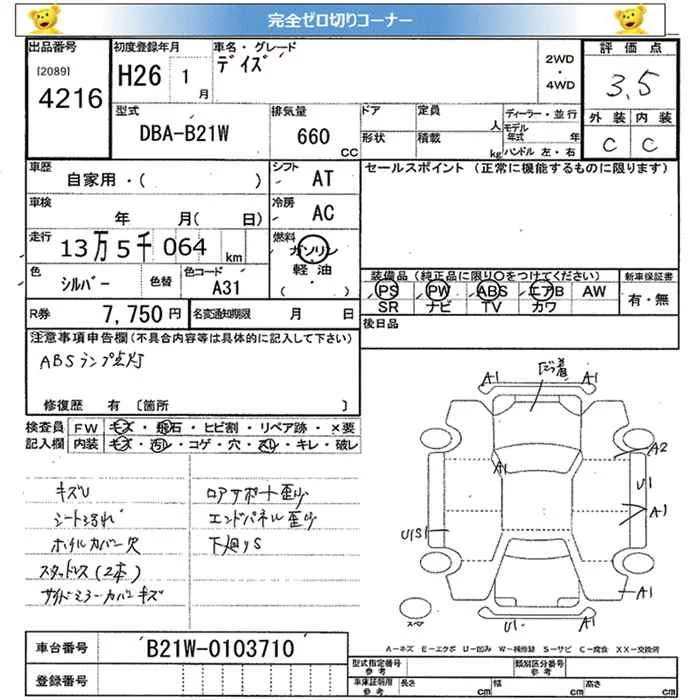 完全ゼロ切りコーナー
出品番号
[2089]
4216
初度登録年月
H26 1月
車名・グレード
デイズ
2WD
・
4WD
評価点
3.5
外装 内装
C C
型式
DBA-B21W
排気量
660 CC
ドア
形状
定員 人
積載 kg
ディーラー・並行
モデル年式 年
ハンドル 左・右
車歴
自家用・( )
シフト
AT
セールスポイント(正常に機能するものに限ります)
車検
年 月( 日)
冷房
AC
走行
13万5千064 km
燃料
ガソリン
軽油
( ・ )
色
シルバー
色替
色コード
A31
装備品(純正品に限り○をつけてください)
PS PW ABS エアB AW
SR ナビ TV カワ
新車保証書
有・無
R券
7,750円
名変通知期限 月 日
後日品
注意事項申告欄(不具合内容等は具体的に記入して下さい)
ABSランプ点灯
修復歴 有 〔箇所 〕
検査員記入欄
FW キズ・飛石・ヒビ割・リペア跡・×要
内装 キズ・汚レ・コゲ・穴・スレ・キレ・破レ
キズU
シート汚れ
ホイルカバー欠
スタッドレス(2本)
サイドミラーカバーキズ
ロアサポート歪り
エンドパネル歪り
下廻りS
A1
A1
A1
A2
U1
A1
U1S1
A1
U1
A1
スペア
A-キズ E-エクボ U-凹み W-補修跡 S-サビ C-腐食 XX-交換済
車台番号
B21W-0103710
登録番号
型式指定番号
参考
類別区分番号
参考
車庫証明用
参考
長さ cm
幅 cm
高さ cm